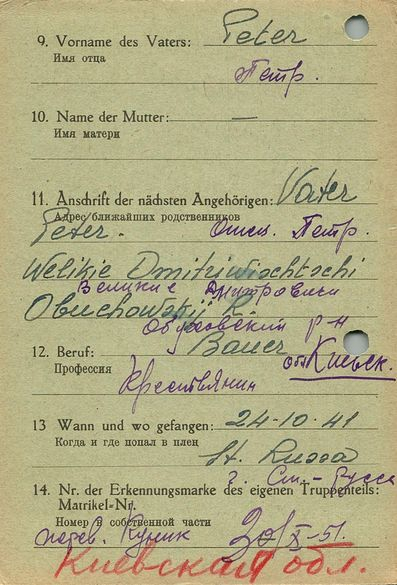 9. Vorname des Vaters: Peter
Имя отца
Петр.
10. Name der Mutter: —
Имя матери
11. Anschrift der nächsten Angehörigen: Vater
Адрес ближайших родственников
Peter. Отец Петр.
Welikie Dmitriwischtschi
Великие Дмитровичи
Obuchowskij R.
Обуховский р-н
12. Beruf: Bauer
обл Киевск.
Профессия
Крестьянин
13 Wann und wo gefangen: 24-10-41
Когда и где попал в плен
St. Russa
г. Ст.-Русса
14. Nr. der Erkennungsmarke des eigenen Truppenteils:
Matrikel-Nr.
Номер в собственной части
перев. 20/X-51.
Киевская обл.